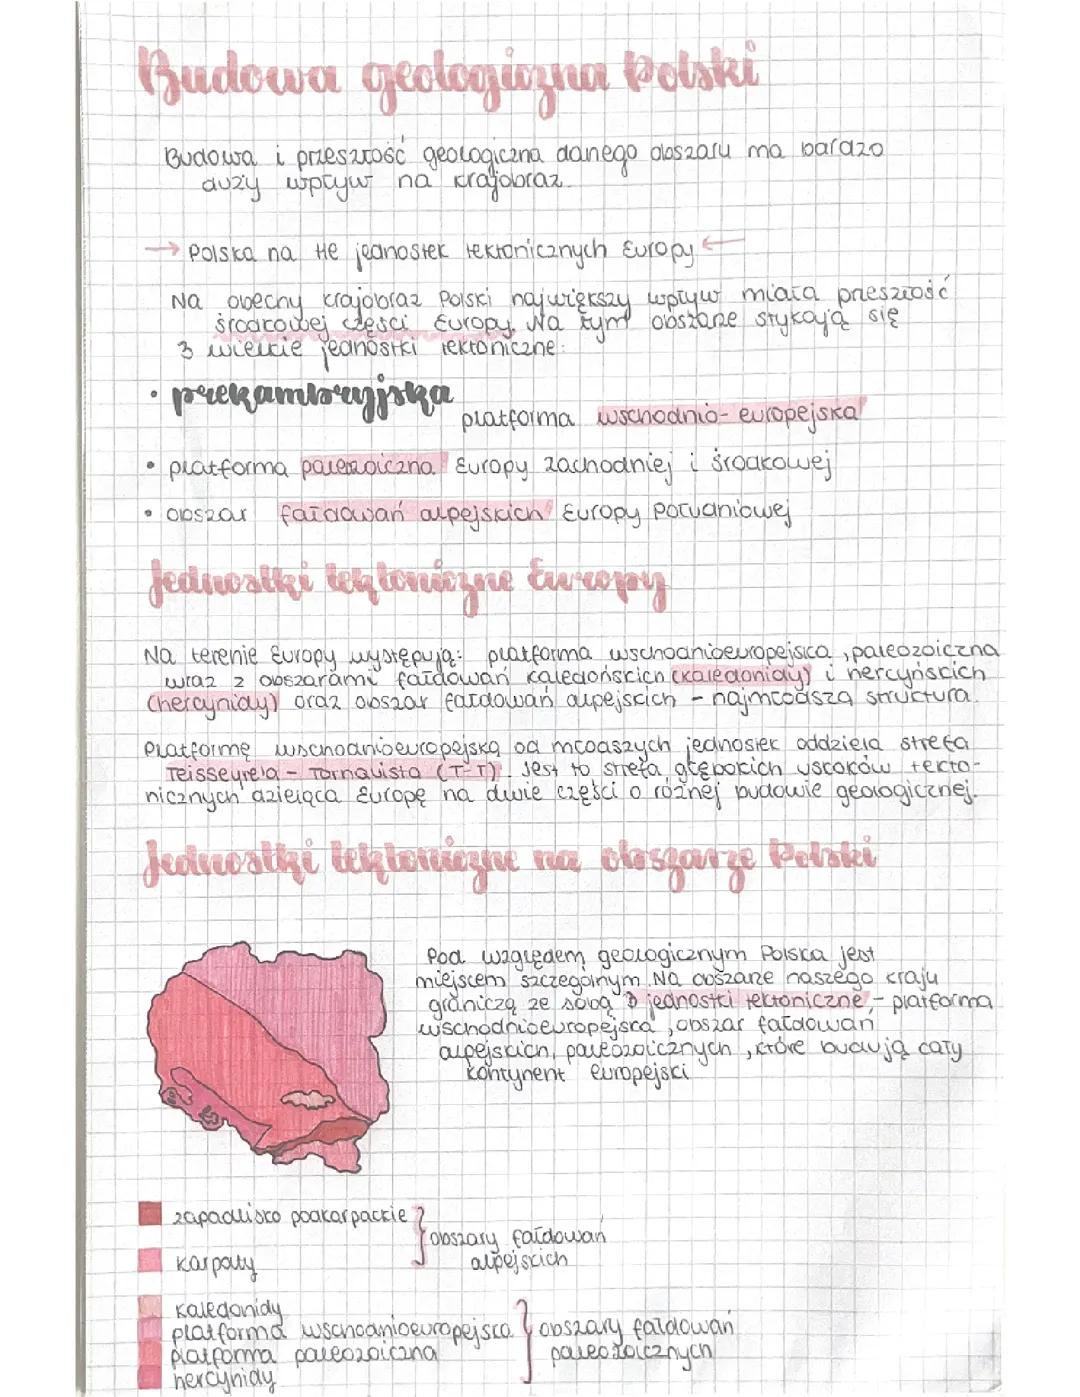 Budowa geologiczna Polski
Budowa i przeszłość geologiczna danego obszaru ma bardzo
duży wpływ na krajobraz.
→ Polska na tle jednostek tektonicznych Europy ←
Na obecny krajobraz Polski największy wpływ miała przeszłość
środkowej części Europy. Na tym obszarze stykają się
3 wielkie jednostki tektoniczne:
• prekambryjska
platforma wschodnio-europejska
• platforma paleozoiczna Europy zachodniej i środkowej
• obszar fałdowań alpejskich Europy Południowej
Jednostki tektoniczne Europy
Na terenie Europy występują: platforma wschodnioeuropejska, paleozoiczna
wraz z obszarami fałdowań kaledońskich (kaledonidy) i hercyńskich
(hercynidy) oraz obszar fałdowań alpejskich - najmłodsza struktura.
Platformę wschodnioeuropejską od młodszych jednostek oddziela strefa
Teisseyre'a - Tornquista (T-T). Jest to strefa głębokich uskoków tekto-
nicznych dzieląca Europę na dwie części o różnej budowie geologicznej.
Jednostki tektoniczne na obszarze Polski
Pod względem geologicznym Polska jest
miejscem szczególnym. Na obszarze naszego kraju
graniczą ze sobą 3 jednostki tektoniczne, - platforma
wschodnioeuropejska, obszar fałdowań
alpejskich, paleozoicznych, które budują cały
kontynent europejski
zapadlisko podkarpackie
obszary fałdowań
alpejskich
Karpaty
kaledonidy
platforma wschodnioeuropejska
obszary fałdowań
platforma paleozoiczna
paleozoicznych
hercynidy